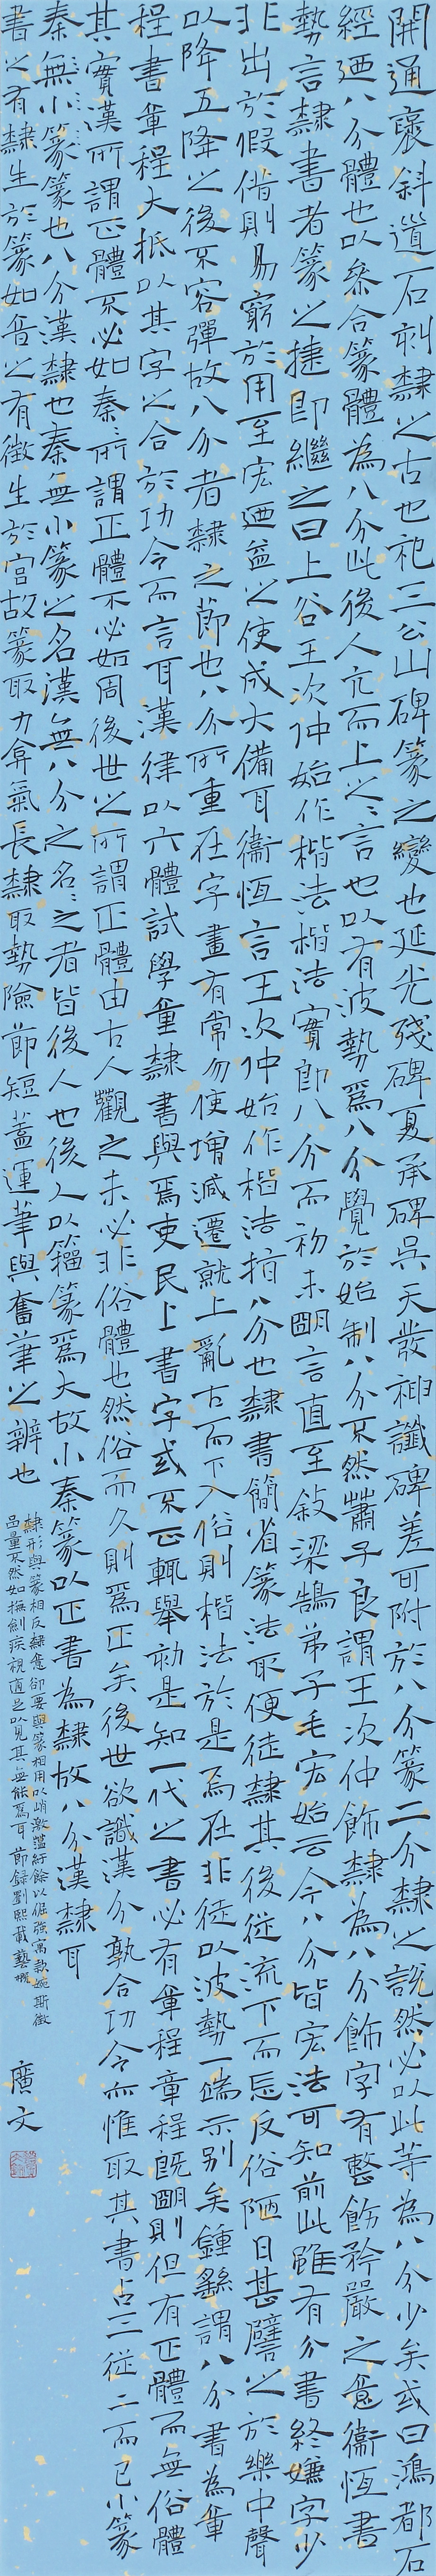 開通褒斜道石刻隸之古也祀三公山碑篆之變也延光殘碑夏承碑吳天發神讖碑差可附於八分篆二分隸之說然必以此等為八分少矣或曰鴻都石
經迺八分體也以參合篆體為八分此後人亢而上之之言也以有波勢為八分覺於始制八分不然蕭子良謂王次仲飾隸為八分飾字有整飭矜嚴之意衛恆書
勢言隸書者篆之捷即繼之曰上谷王次仲始作楷法楷法實即八分而初未明言直至敍梁鵠弟子毛宏始云今八分皆宏法可知前此雖有分書終嫌字少
非出於假借則易窮於用至宏迺益之使成大備耳衛恆言王次仲始作楷法指八分也隸書簡省篆法取便徒隸其後從流下而忘反俗陋日甚譬之於樂中聲
以降五降之後不容彈故八分者隸之節也八分所重在字畫有常勿使增減遷就上亂古而下入俗則楷法於是焉在非徒以波勢一端示別矣鍾繇謂八分書為章
程書章程大抵以其字之合於功令而言耳漢律以六體試學童隸書與焉吏民上書字或不正輒舉劾是知一代之書必有章程章程既明則但有正體而無俗體
其實漢所謂正體不必如秦秦所謂正體不必如周後世之所謂正體由古人觀之未必非俗體也然俗而久則為正矣後世欲識漢分孰合功令而惟取其書占三從二而已小篆
秦無小篆篆也八分漢隸也秦無小篆之名漢無八分之名名之者皆後人也後人以籀篆為大故小秦篆以正書為隸故八分漢隸耳
書之有隸生於篆如音之有徵生於宮故篆取力弇氣長隸取勢險節短蓋運筆與奮筆之辨也
隸形與篆相反隸意卻要與篆相用以峭激蘊紆餘以倔強寓款婉斯徵
品量不然如撫劍疾視適足以見其無能為耳 節錄劉熙載藝概
廣文